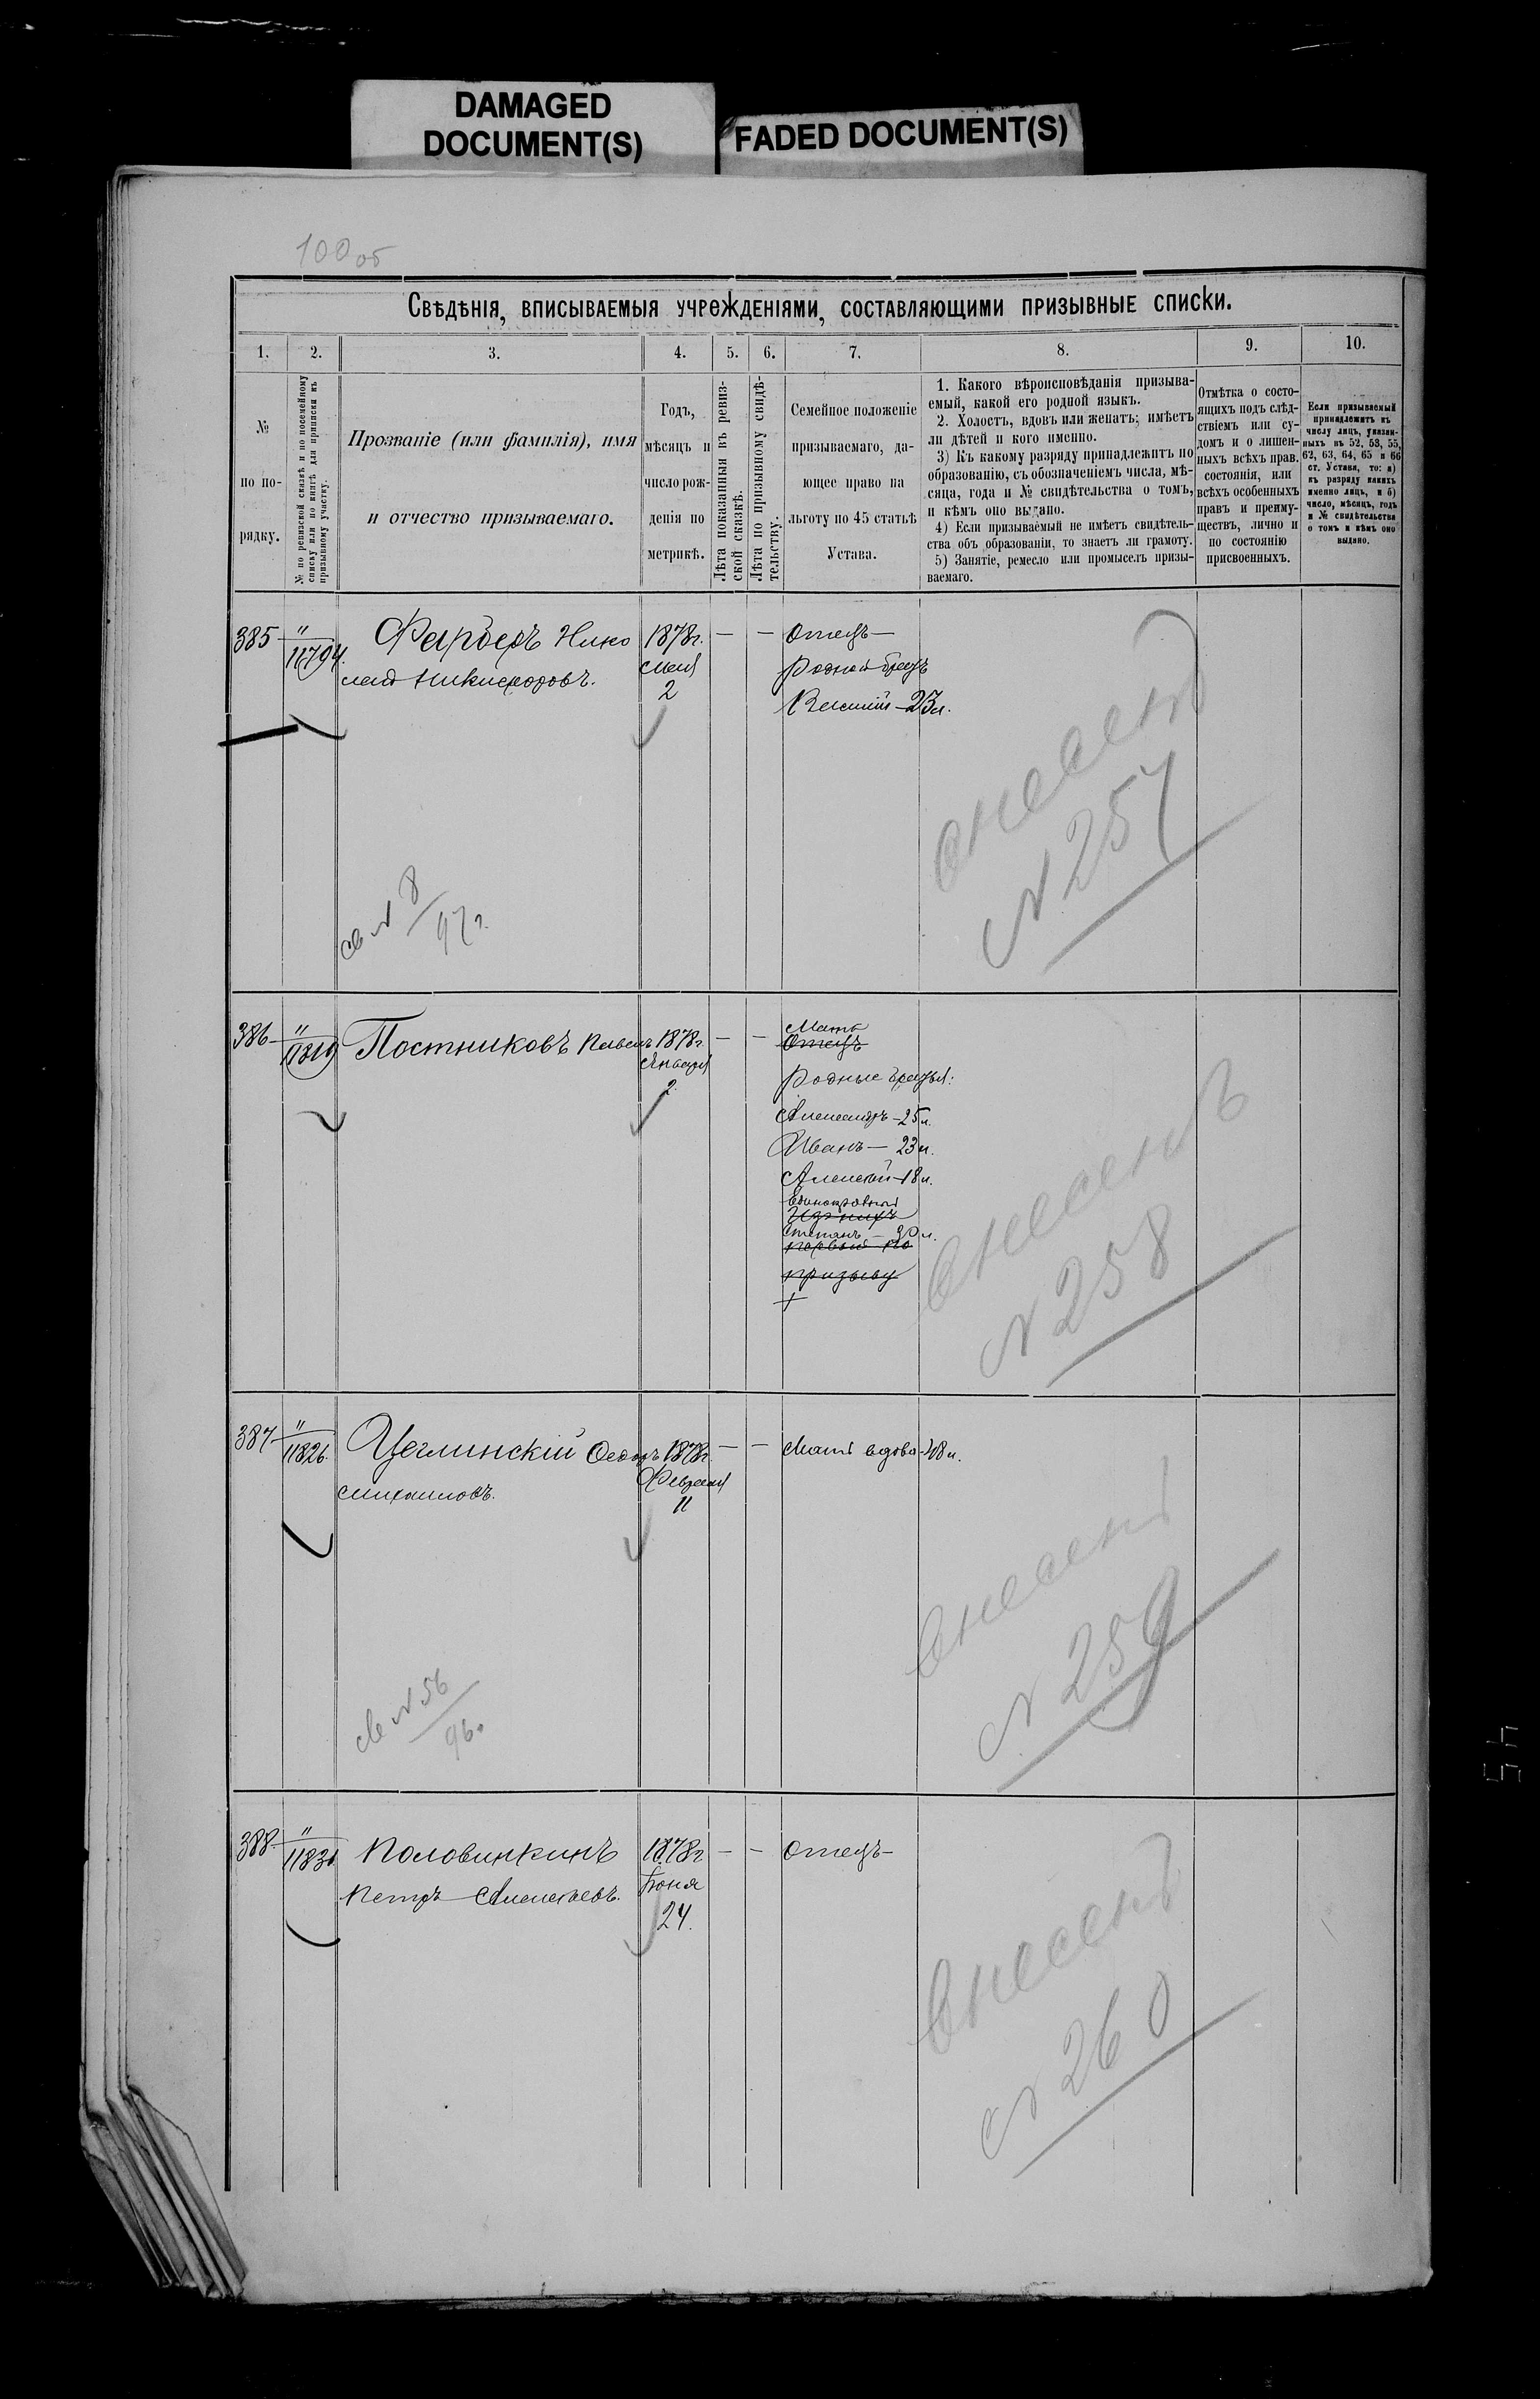 DAMAGED
DOCUMENT(S)
FADED DOCUMENT(S)
100 об
Свѣдѣнія, вписываемыя учрежденіями, составляющими призывные списки.
1.
2.
3.
4.
5.
6.
7.
8.
9.
10.
№
по по-
рядку.
№ по ревизской сказкѣ и по посемейному
списку или по книгѣ для приписки къ
призывному участку.
Прозваніе (или фамилія), имя
и отчество призываемаго.
Годъ,
мѣсяцъ и
число рож-
денія по
метрикѣ.
Лѣта показанныя въ ревиз-
ской сказкѣ.
Лѣта по призывному свидѣ-
тельству.
Семейное положеніе
призываемаго, да-
ющее право на
льготу по 45 статьѣ
Устава.
1. Какого вѣроисповѣданія призыва-
емый, какой его родной языкъ.
2. Холостъ, вдовъ или женатъ; имѣетъ
ли дѣтей и кого именно.
3) Къ какому разряду принадлежитъ по
образованію, съ обозначеніемъ числа, мѣ-
сяца, года и № свидѣтельства о томъ,
и кѣмъ оно выдано.
4) Если призываемый не имѣетъ свидѣтель-
ства объ образованіи, то знаетъ ли грамоту.
5) Занятіе, ремесло или промыселъ призы-
ваемаго.
Отмѣтка о состо-
ящихъ подъ слѣд-
ствіемъ или су-
домъ и о лишен-
ныхъ всѣхъ прав.
состоянія, или
всѣхъ особенныхъ
правъ и преиму-
ществъ, лично и
по состоянію
присвоенныхъ.
Если призываемый
принадлежитъ къ
числу лицъ, указан-
ныхъ въ 52, 53, 55,
62, 63, 64, 65 и 66
ст. Устава, то: а)
къ разряду какихъ
именно лицъ, и б)
число, мѣсяцъ, годъ
и № свидѣтельства
о томъ и кѣмъ оно
выдано.
385
"
11794.
Нико
лай Никифоровъ.
1878г.
Мая
2
— — Отецъ —
Родной братъ
Василій — 23 л.
внесенъ
№ 257
св № 8
97 г.
386
"
11819
Постниковъ Павелъ
1878г.
Января
2.
— —
Мать
Отецъ
Родные братья:
Александръ — 25 л.
Иванъ — 23 л.
Алексѣй — 18 л.
Единокровный
Изъ нихъ
Степанъ — 30 л.
первый по
призыву
+
внесенъ
№ 258
387
"
11826.
Цеглинскій Ѳедоръ
Михаиловъ.
1878г.
Февраля
11
— — Мать вдова — 48 л.
внесенъ
№ 259
св № 56
96.
388.
"
1183
Половинкинъ
Петръ Алексѣевъ.
1878г
Іюня
24.
— — Отецъ —
внесенъ
№ 260
45